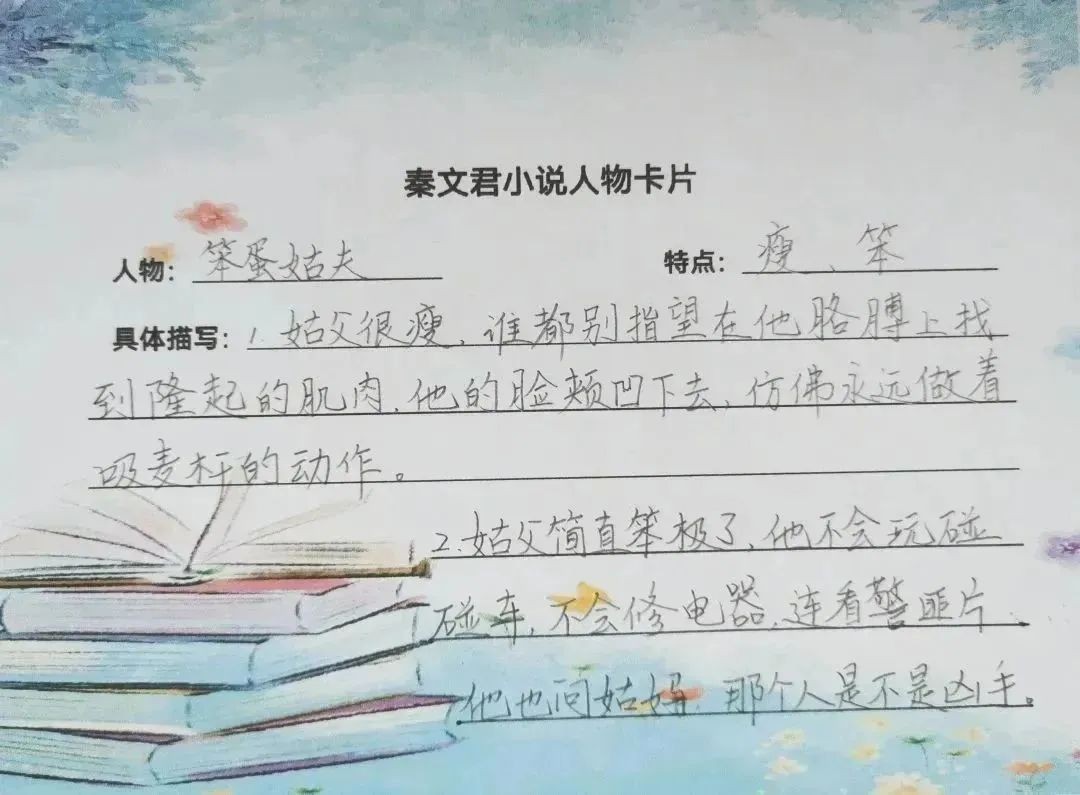 秦文君小说人物卡片
人物: 笨蛋姑夫 特点: 瘦、笨
具体描写: 1. 姑父很瘦,谁都别指望在他胳膊上找
到隆起的肌肉,他的脸颊凹下去,仿佛永远做着
吸麦杆的动作。
2. 姑父简直笨极了,他不会玩碰
碰车,不会修电器,连看警匪片、
他也问姑妈 那个人是不是凶手。